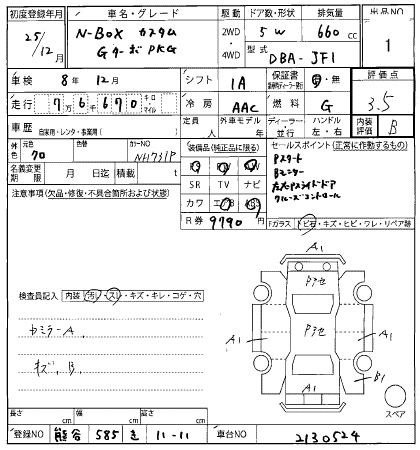 初度登録年月
車名・グレード
駆動
ドア数・形状
排気量
出品NO
25/12月
N-BOX カスタム
Gターボ PKG
2WD
・
4WD
5 W
660 cc
型式
DBA-JF1
1
車検 8年 12月
シフト 1A
保証書 有・無
評価点
3.5
走行 7万6千670 キロ・マイル
冷房 AAC
燃料 G
車歴 自家用・レンタ・事業用( )
定員 人
外車モデル 年
ディーラー・並行
ハンドル 左・右
内装評価 B
外色
元色 クロ
色替
カラーNO NH731P
装備品(純正品に限る)
セールスポイント(正常に作動するもの)
Pスタート
Bモニター
左右Pスライドドア
クルーズコントロール
名義変更期限 月 日迄
積載 t
SR TV ナビ
カワ エアB ABS
R券 9790円
注意事項(欠品・修復・不具合箇所および状態)
Fガラス トビ石・キズ・ヒビ・ワレ・リペア跡
検査員記入 内装 汚レ・スレ・キズ・キレ・コゲ・穴
カミラーA
キズ、B
A1
Pアセ
A1
Pアセ
A1
B1
A1
スペア
長さ cm
幅 cm
高さ cm
登録NO 熊谷 585 き 11-11
車台NO 2130524